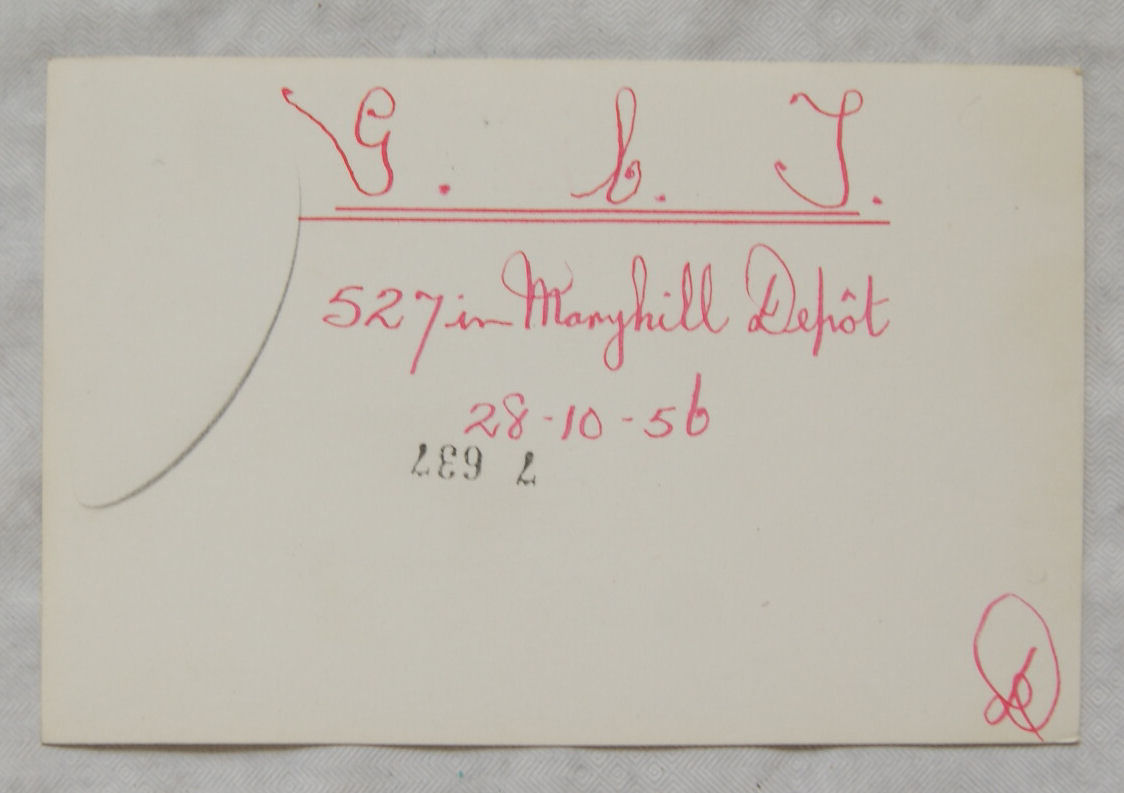 G. C. T.
527 in Maryhill Depôt
28-10-56
7 637
D